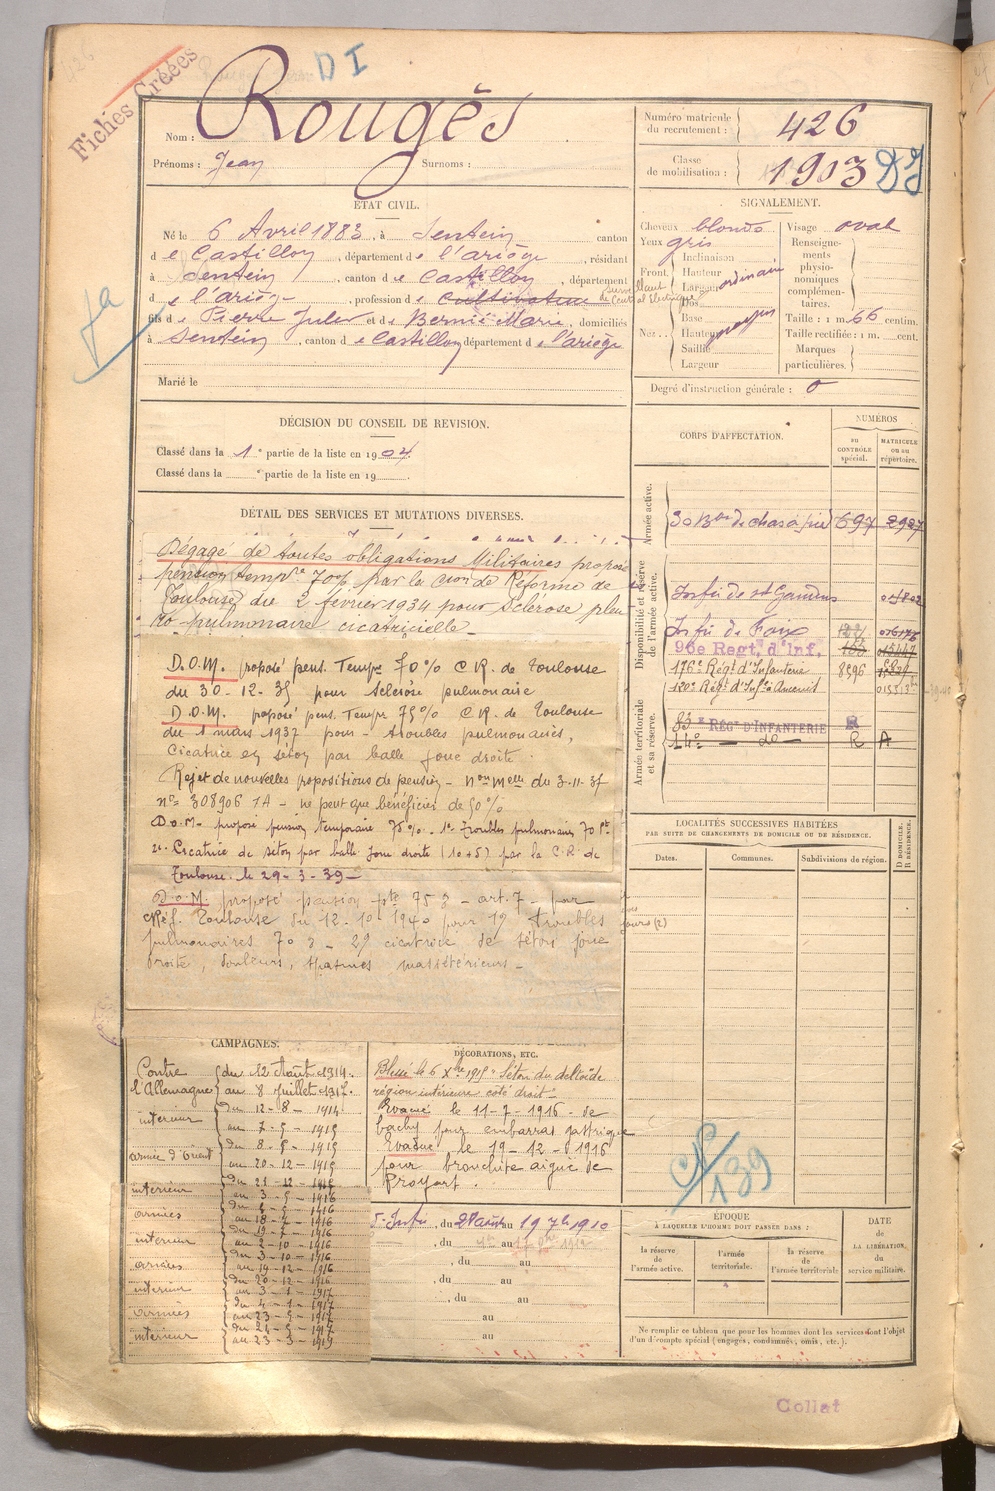 Fichés Créées
D I
Nom : Rougés
Prénoms : Jean Surnoms :
Numéro matricule du recrutement : 426
Classe de mobilisation : 1903 DI
ÉTAT CIVIL.
Né le 6 Avril 1883, à Sentein canton
de Castillon, département de l'ariège, résidant
à Sentein, canton de Castillon, département
de l'ariège, profession de cultivateur surveillant de Central Electrique
fils de Pierre Jules et de Bernié Marie, domiciliés
à Sentein, canton de Castillon département de l'ariège
Marié le
SIGNALEMENT.
Cheveux blonds
Yeux gris
Front. Inclinaison Hauteur Largeur ordinaire
Nez. Dos Base Hauteur Saillie Largeur
Visage oval
Renseignements physionomiques complémentaires.
Taille : 1 m. 66 centim.
Taille rectifiée : 1 m. cent.
Marques particulières.
Degré d'instruction générale : 0
DÉCISION DU CONSEIL DE REVISION.
Classé dans la 1e partie de la liste en 1904.
Classé dans la e partie de la liste en 19
DÉTAIL DES SERVICES ET MUTATIONS DIVERSES.
Dégagé de toutes obligations Militaires proposé
pension tempre 70% par la Cion de Réforme de
Toulouse du 2 février 1934 pour sclérose pleu
ro-pulmonaire cicatricielle.
D.O.M. proposé pens. Tempre 70% C.R. de Toulouse
du 30-12-35 pour sclérose pulmonaire
D.O.M. proposé pens. Tempre 75% C.R. de Toulouse
du 1 mars 1937 pour troubles pulmonaires,
cicatrice en séton par balle joue droite.
Rejet de nouvelles propositions de pension - non melle du 3-11-37
n° 308906 1A - ne peut que bénéficier de 50%
D.O.M. proposé pension temporaire 75%. 1° Troubles pulmonaires 70 %
2° Cicatrice de séton par balle joue droite (10+5) par la C.R. de
Toulouse le 29-3-39
D.O.M. proposé pension 75 % - art. 7 - par
Réf. Toulouse du 12-10-1940 pour 1° troubles
pulmonaires 70 % - 2° cicatrice de séton joue
droite, douleurs, spasmes massétériens -
CORPS D'AFFECTATION.
NUMÉROS
DU CONTRÔLE spécial.
MATRICULE ou au répertoire.
Armée active.
30 Bon de chas à pied 697 2927
Disponibilité et réserve de l'armée active.
Infrie de St Gaudens
Infrie de Foix
96e Regt. d'Inf.
176e Régt d'Infanterie 8596
120e Régt d'Infie
Armée territoriale et sa réserve.
83e RÉGt D'INFANTERIE R
14e — do — R A
LOCALITÉS SUCCESSIVES HABITÉES
PAR SUITE DE CHANGEMENTS DE DOMICILE OU DE RÉSIDENCE.
D DOMICILE. R RÉSIDENCE.
Dates. Communes. Subdivisions de région.
jours (2)
CAMPAGNES.
Contre l'Allemagne du 12 Août 1914. au 8 Juillet 1917.
intérieur du 12-8-1914 au 7-5-1915
armée d'Orient du 8-5-1915 au 20-12-1915
intérieur du 21-12-1915 au 3-5-1916
armées du 4-5-1916 au 18-7-1916
intérieur du 19-7-1916 au 2-10-1916
armées du 3-10-1916 au 19-12-1916
intérieur du 20-12-1916 au 3-1-1917
armées du 4-1-1917 au 23-5-1917
intérieur du 24-5-1917 au 23-3-1919
DÉCORATIONS, ETC.
Blessé le 6 Xbre 1915 Séton du deltoïde
région intérieure côté droit-
Evacué le 11-7-1916 - de
bachy pour embarras gastrique
Evacué le 19-12-1916
pour bronchite aigue de
Proyart.
Infie, du 28 août au 19 7bre 1910
, du au
, du au
, du au
, du au
au
au
CP/139
ÉPOQUE
À LAQUELLE L'HOMME DOIT PASSER DANS :
la réserve de l'armée active.
l'armée territoriale.
la réserve de l'armée territoriale
DATE de LA LIBÉRATION, du service militaire.
Ne remplir ce tableau que pour les hommes dont les services font l'objet
d'un décompte spécial (engagés, condamnés, omis, etc.).
Collat